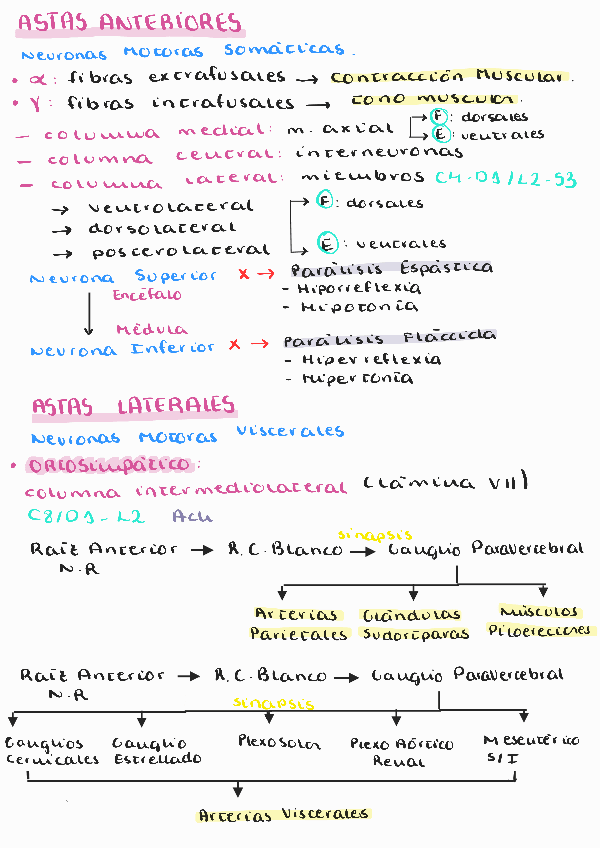 ASTAS ANTERIORES
Neuronas Motoras Somáticas.
• α: fibras extrafusales → contracción Muscular.
• γ: fibras intrafusales → tono muscular.
– columna medial: m. axial F: dorsales
E: ventrales
– columna central: interneuronas
– columna lateral: miembros C4-D1/L2-S3
→ ventrolateral F: dorsales
→ dorsolateral
→ posterolateral E: ventrales
Neurona Superior x → Parálisis Espástica
Encéfalo - Hiporreflexia
- Hipotonía
Médula
Neurona Inferior x → Parálisis Fláccida
- Hiperreflexia
- Hipertonía
ASTAS LATERALES
Neuronas Motoras Viscerales
• Ortosimpático:
columna intermediolateral (lámina VII)
C8/D1-L2 Ach
sinapsis
Raíz Anterior → R.C. Blanco → Ganglio Paravertebral
N.R
Arterias Glándulas Músculos
Parietales Sudoríparas Piloerecciones
Raíz Anterior → R.C. Blanco → Ganglio Paravertebral
N.R
sinapsis
Ganglios Ganglio Plexo Solar Plexo Aórtico Mesentérico
Cervicales Estrellado Renal S/I
Arterias Viscerales